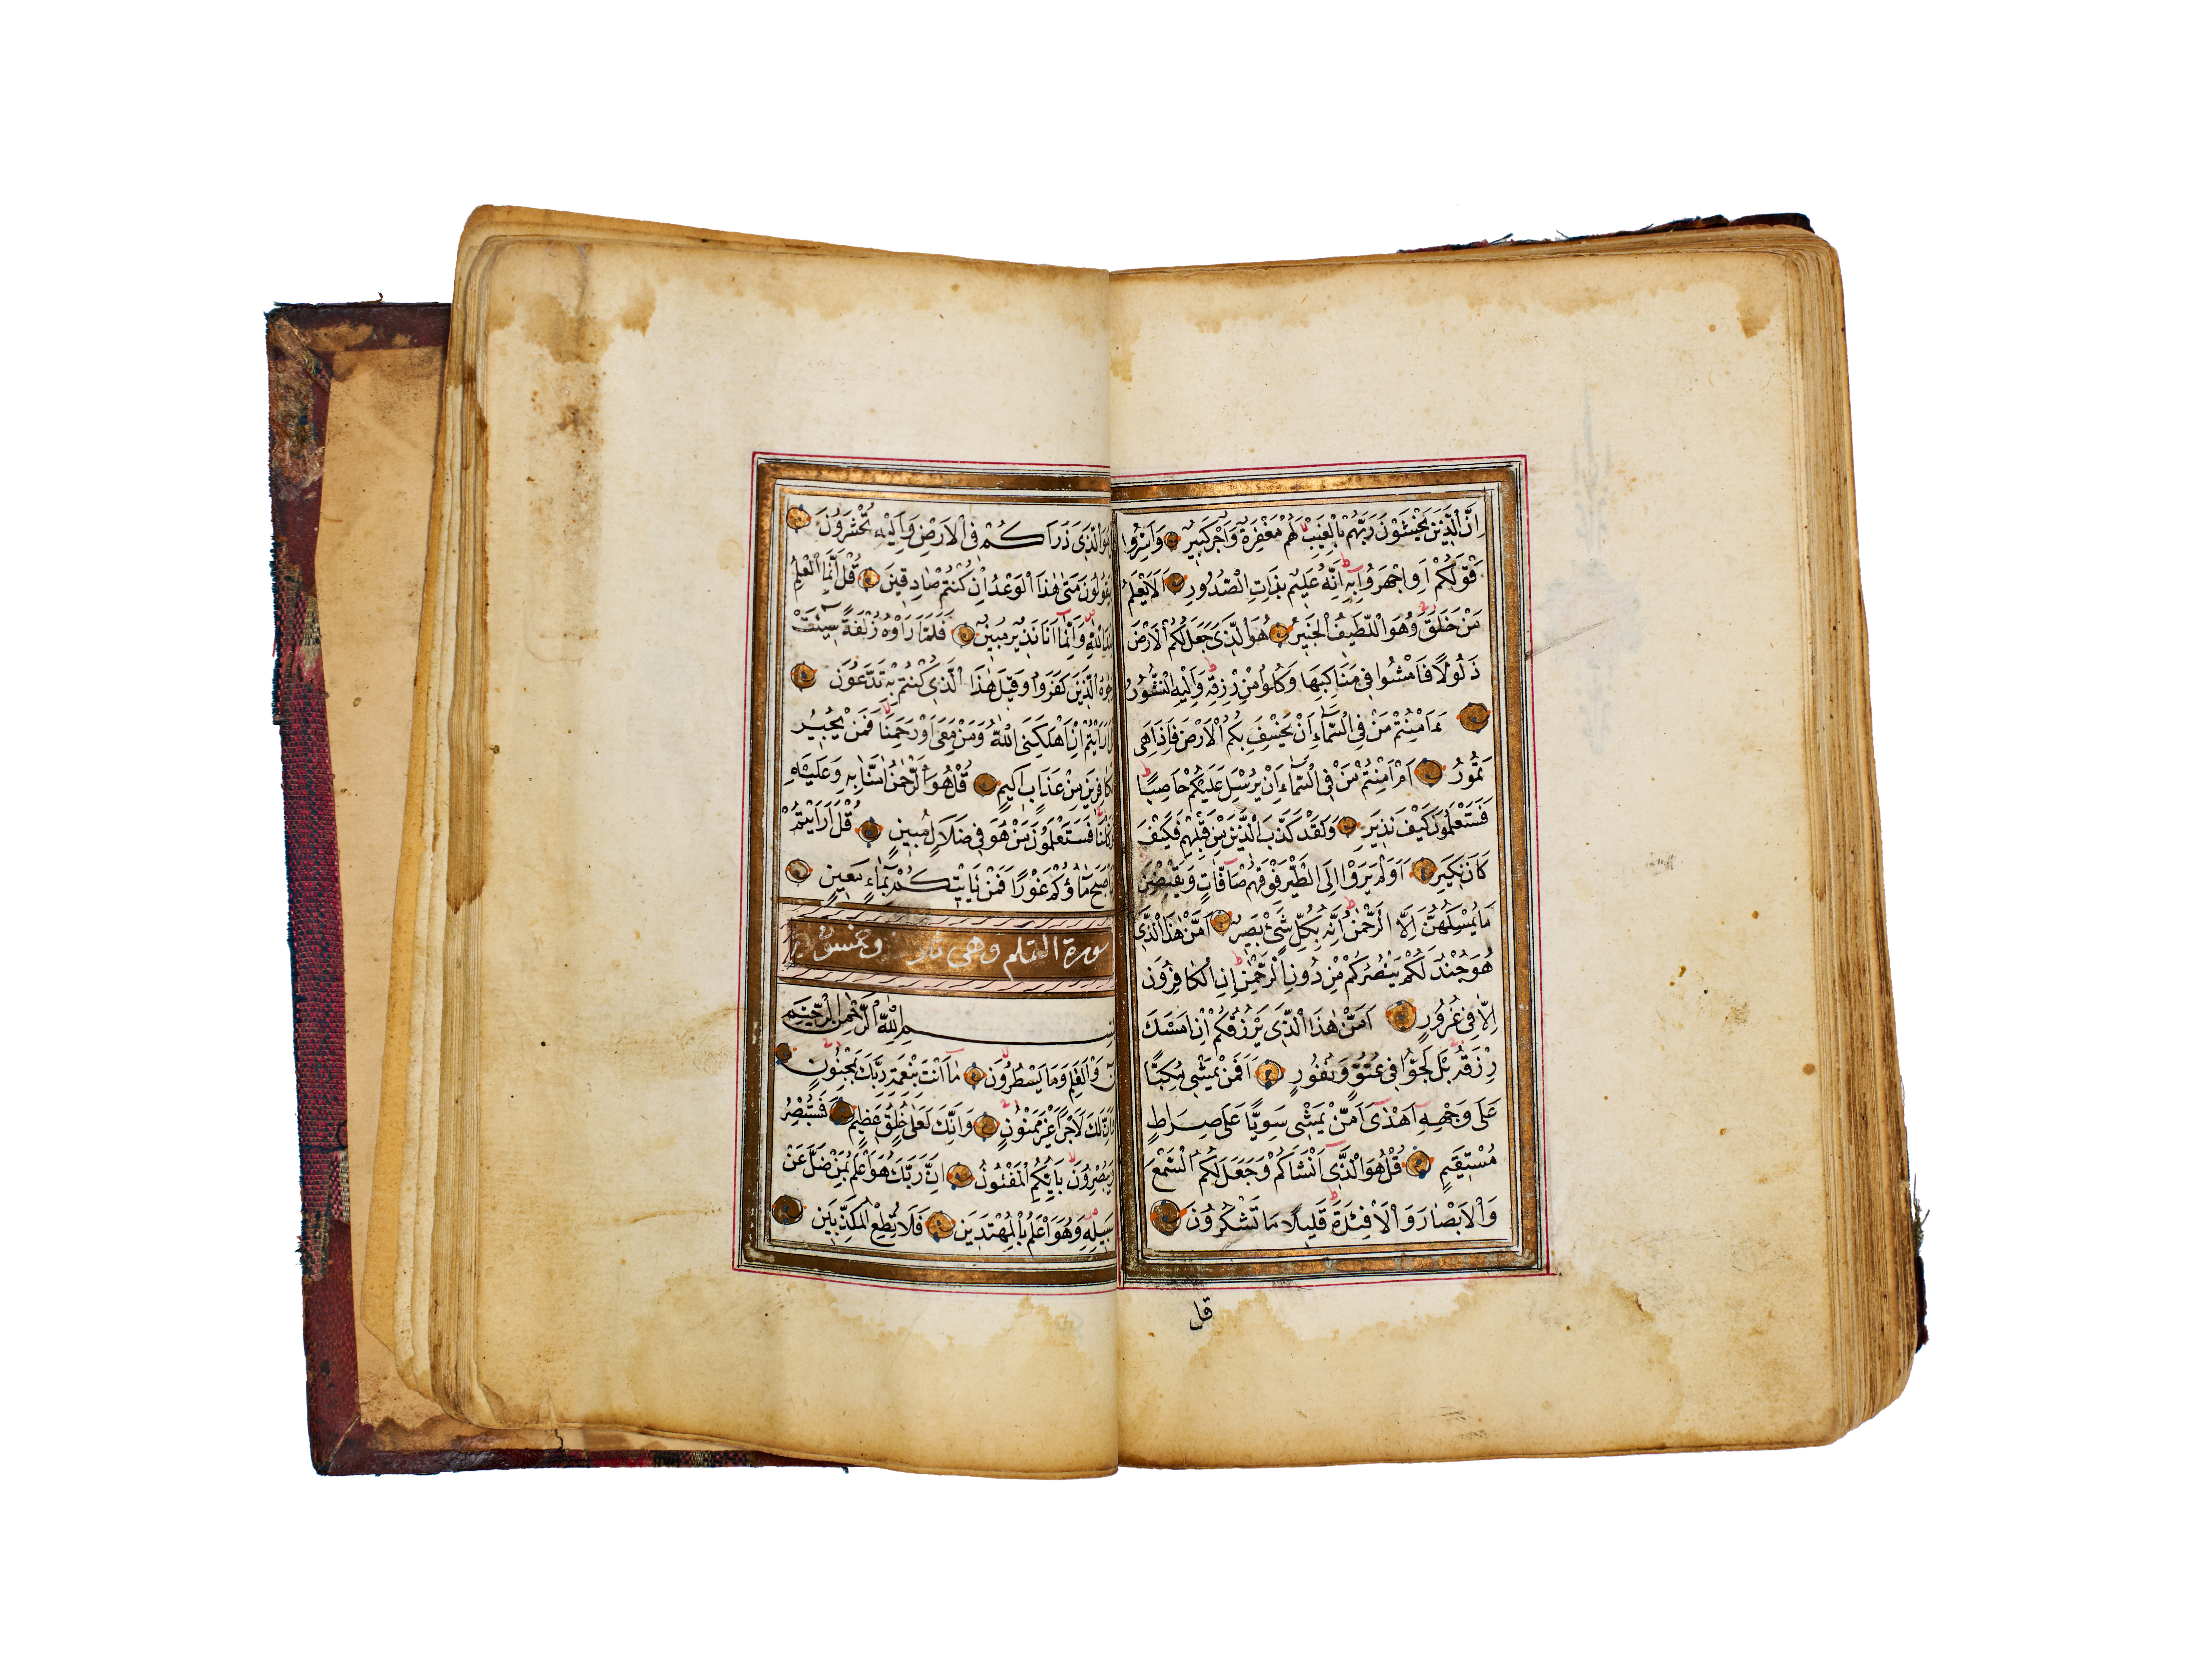 اِنَّ الَّذِينَ يَخْشَوْنَ رَبَّهُمْ بِالْغَيْبِ لَهُمْ مَغْفِرَةٌ وَاَجْرٌ كَبِيرٌ وَاَسِرُّوا
قَوْلَكُمْ اَوِ اجْهَرُوا بِهِ اِنَّهُ عَلِيمٌ بِذَاتِ الصُّدُورِ اَلَا يَعْلَمُ
مَنْ خَلَقَ وَهُوَ اللَّطِيفُ الْخَبِيرُ هُوَ الَّذِي جَعَلَ لَكُمُ الْاَرْضَ
ذَلُولًا فَامْشُوا فِي مَنَاكِبِهَا وَكُلُوا مِنْ رِزْقِهِ وَاِلَيْهِ النُّشُورُ
ءَاَمِنْتُمْ مَنْ فِي السَّمَاءِ اَنْ يَخْسِفَ بِكُمُ الْاَرْضَ فَاِذَا هِيَ
تَمُورُ اَمْ اَمِنْتُمْ مَنْ فِي السَّمَاءِ اَنْ يُرْسِلَ عَلَيْكُمْ حَاصِبًا
فَسَتَعْلَمُونَ كَيْفَ نَذِيرِ وَلَقَدْ كَذَّبَ الَّذِينَ مِنْ قَبْلِهِمْ فَكَيْفَ
كَانَ نَكِيرِ اَوَلَمْ يَرَوْا اِلَى الطَّيْرِ فَوْقَهُمْ صَافَّاتٍ وَيَقْبِضْنَ
مَا يُمْسِكُهُنَّ اِلَّا الرَّحْمٰنُ اِنَّهُ بِكُلِّ شَيْءٍ بَصِيرٌ اَمَّنْ هٰذَا الَّذِي
هُوَ جُنْدٌ لَكُمْ يَنْصُرُكُمْ مِنْ دُونِ الرَّحْمٰنِ اِنِ الْكَافِرُونَ
اِلَّا فِي غُرُورٍ اَمَّنْ هٰذَا الَّذِي يَرْزُقُكُمْ اِنْ اَمْسَكَ
رِزْقَهُ بَلْ لَجُّوا فِي عُتُوٍّ وَنُفُورٍ اَفَمَنْ يَمْشِي مُكِبًّا
عَلَى وَجْهِهِ اَهْدٰى اَمَّنْ يَمْشِي سَوِيًّا عَلَى صِرَاطٍ
مُسْتَقِيمٍ قُلْ هُوَ الَّذِي اَنْشَاَكُمْ وَجَعَلَ لَكُمُ السَّمْعَ
وَالْاَبْصَارَ وَالْاَفْئِدَةَ قَلِيلًا مَا تَشْكُرُونَ
قل
هُوَ الَّذِي ذَرَاَكُمْ فِي الْاَرْضِ وَاِلَيْهِ تُحْشَرُونَ
وَيَقُولُونَ مَتٰى هٰذَا الْوَعْدُ اِنْ كُنْتُمْ صَادِقِينَ قُلْ اِنَّمَا الْعِلْمُ
عِنْدَ اللّٰهِ وَاِنَّمَا اَنَا نَذِيرٌ مُبِينٌ فَلَمَّا رَاَوْهُ زُلْفَةً سِيئَتْ
وُجُوهُ الَّذِينَ كَفَرُوا وَقِيلَ هٰذَا الَّذِي كُنْتُمْ بِهِ تَدَّعُونَ
اَرَاَيْتُمْ اِنْ اَهْلَكَنِيَ اللّٰهُ وَمَنْ مَعِيَ اَوْ رَحِمَنَا فَمَنْ يُجِيرُ
الْكَافِرِينَ مِنْ عَذَابٍ اَلِيمٍ قُلْ هُوَ الرَّحْمٰنُ اٰمَنَّا بِهِ وَعَلَيْهِ
تَوَكَّلْنَا فَسَتَعْلَمُونَ مَنْ هُوَ فِي ضَلَالٍ مُبِينٍ قُلْ اَرَاَيْتُمْ
اِنْ اَصْبَحَ مَاؤُكُمْ غَوْرًا فَمَنْ يَاْتِيكُمْ بِمَاءٍ مَعِينٍ
سورة القلم وهى وخمسون
بِسْمِ اللّٰهِ الرَّحْمٰنِ الرَّحِيمِ
نٓ وَالْقَلَمِ وَمَا يَسْطُرُونَ مَا اَنْتَ بِنِعْمَةِ رَبِّكَ بِمَجْنُونٍ
وَاِنَّ لَكَ لَاَجْرًا غَيْرَ مَمْنُونٍ وَاِنَّكَ لَعَلٰى خُلُقٍ عَظِيمٍ فَسَتُبْصِرُ
وَيُبْصِرُونَ بِاَيِّكُمُ الْمَفْتُونُ اِنَّ رَبَّكَ هُوَ اَعْلَمُ بِمَنْ ضَلَّ عَنْ
سَبِيلِهِ وَهُوَ اَعْلَمُ بِالْمُهْتَدِينَ فَلَا تُطِعِ الْمُكَذِّبِينَ